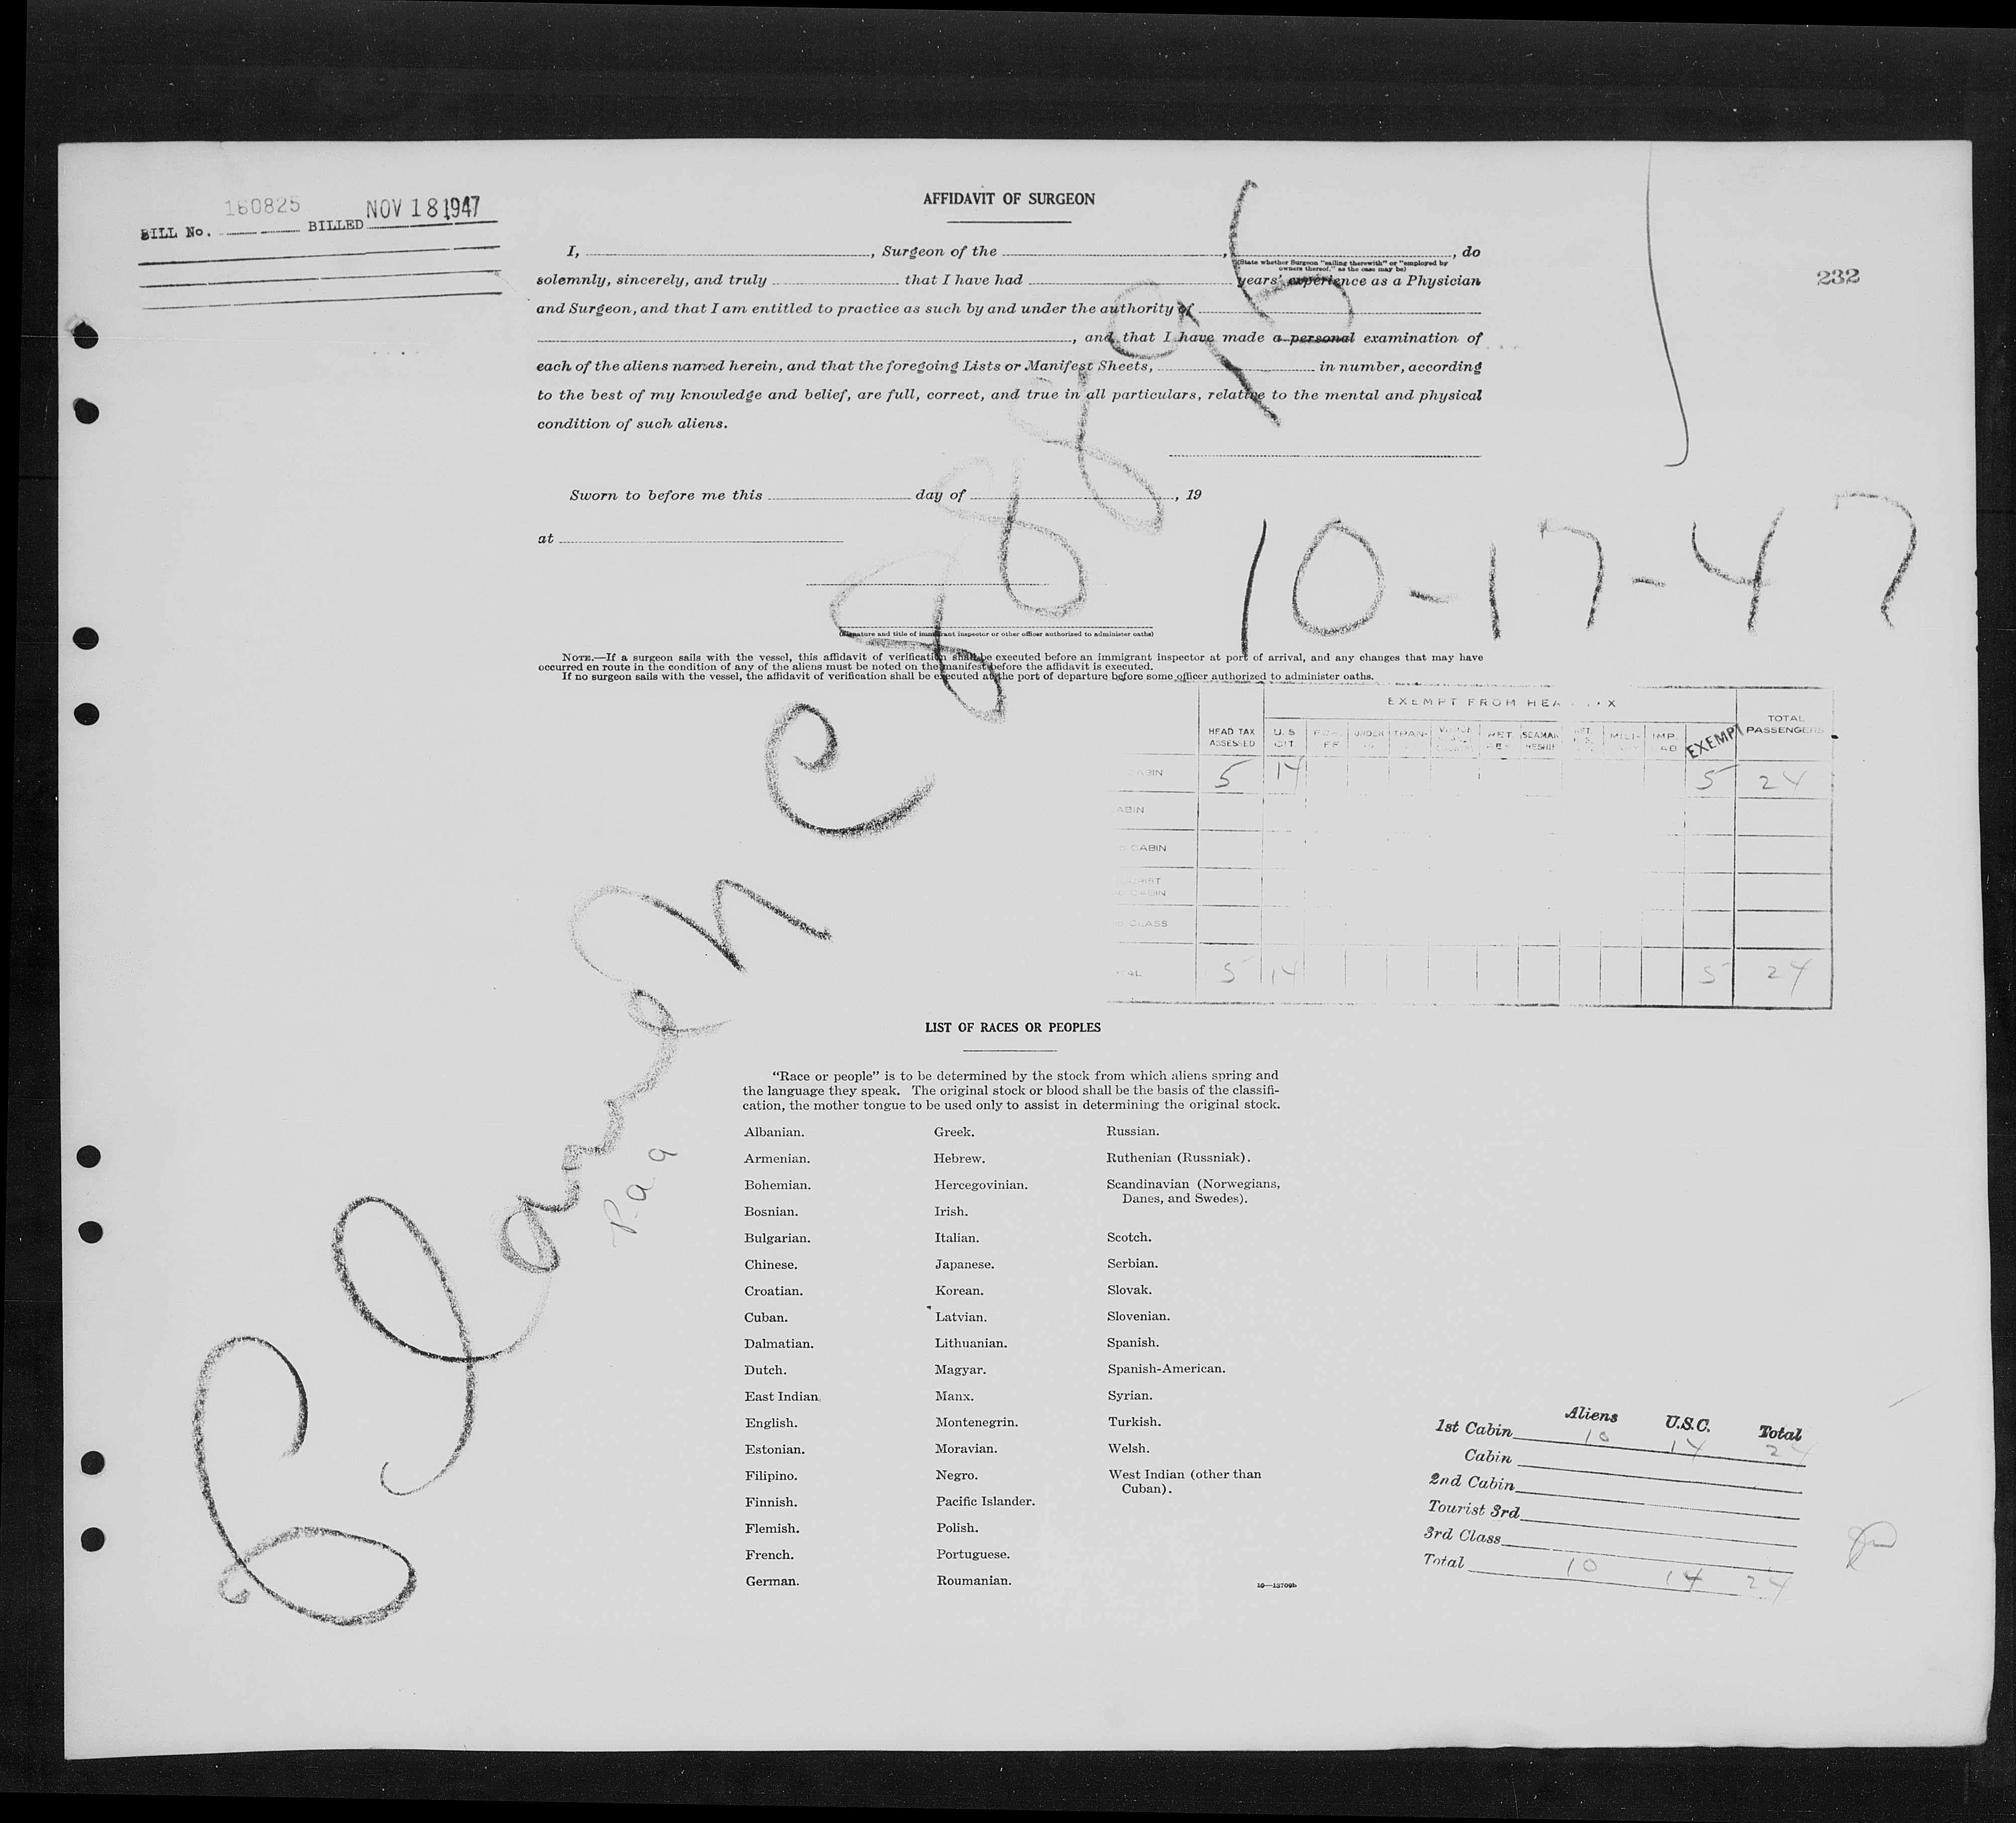 160825
BILL No. BILLED NOV 18 1947
232
AFFIDAVIT OF SURGEON
I, , Surgeon of the , , do
(State whether Surgeon "sailing therewith" or "employed by
owners thereof," as the case may be)
solemnly, sincerely, and truly that I have had years' experience as a Physician
and Surgeon, and that I am entitled to practice as such by and under the authority of
, and that I have made a personal examination of
each of the aliens named herein, and that the foregoing Lists or Manifest Sheets, in number, according
to the best of my knowledge and belief, are full, correct, and true in all particulars, relative to the mental and physical
condition of such aliens.
Sworn to before me this day of , 19
at
10-17-47
(Signature and title of immigrant inspector or other officer authorized to administer oaths)
NOTE.—If a surgeon sails with the vessel, this affidavit of verification shall be executed before an immigrant inspector at port of arrival, and any changes that may have
occurred en route in the condition of any of the aliens must be noted on the manifest before the affidavit is executed.
If no surgeon sails with the vessel, the affidavit of verification shall be executed at the port of departure before some officer authorized to administer oaths.
HEAD TAX
ASSESSED
U.S
CIT
UNDER
TRAN-
RET
SEAMAN
MILI-
IMP.
EXEMPT
TOTAL
PASSENGERS
5 14 5 24
CABIN
CABIN
CLASS
5 14 5 24
LIST OF RACES OR PEOPLES
"Race or people" is to be determined by the stock from which aliens spring and
the language they speak. The original stock or blood shall be the basis of the classifi-
cation, the mother tongue to be used only to assist in determining the original stock.
Albanian. Greek. Russian.
Armenian. Hebrew. Ruthenian (Russniak).
Bohemian. Hercegovinian. Scandinavian (Norwegians,
Danes, and Swedes).
Bosnian. Irish.
Bulgarian. Italian. Scotch.
Chinese. Japanese. Serbian.
Croatian. Korean. Slovak.
Cuban. Latvian. Slovenian.
Dalmatian. Lithuanian. Spanish.
Dutch. Magyar. Spanish-American.
East Indian. Manx. Syrian.
English. Montenegrin. Turkish.
Estonian. Moravian. Welsh.
Filipino. Negro. West Indian (other than
Cuban).
Finnish. Pacific Islander.
Flemish. Polish.
French. Portuguese.
German. Roumanian.
16—13709b
Aliens U.S.C. Total
1st Cabin 10 14 24
Cabin
2nd Cabin
Tourist 3rd
3rd Class
Total 10 14 24